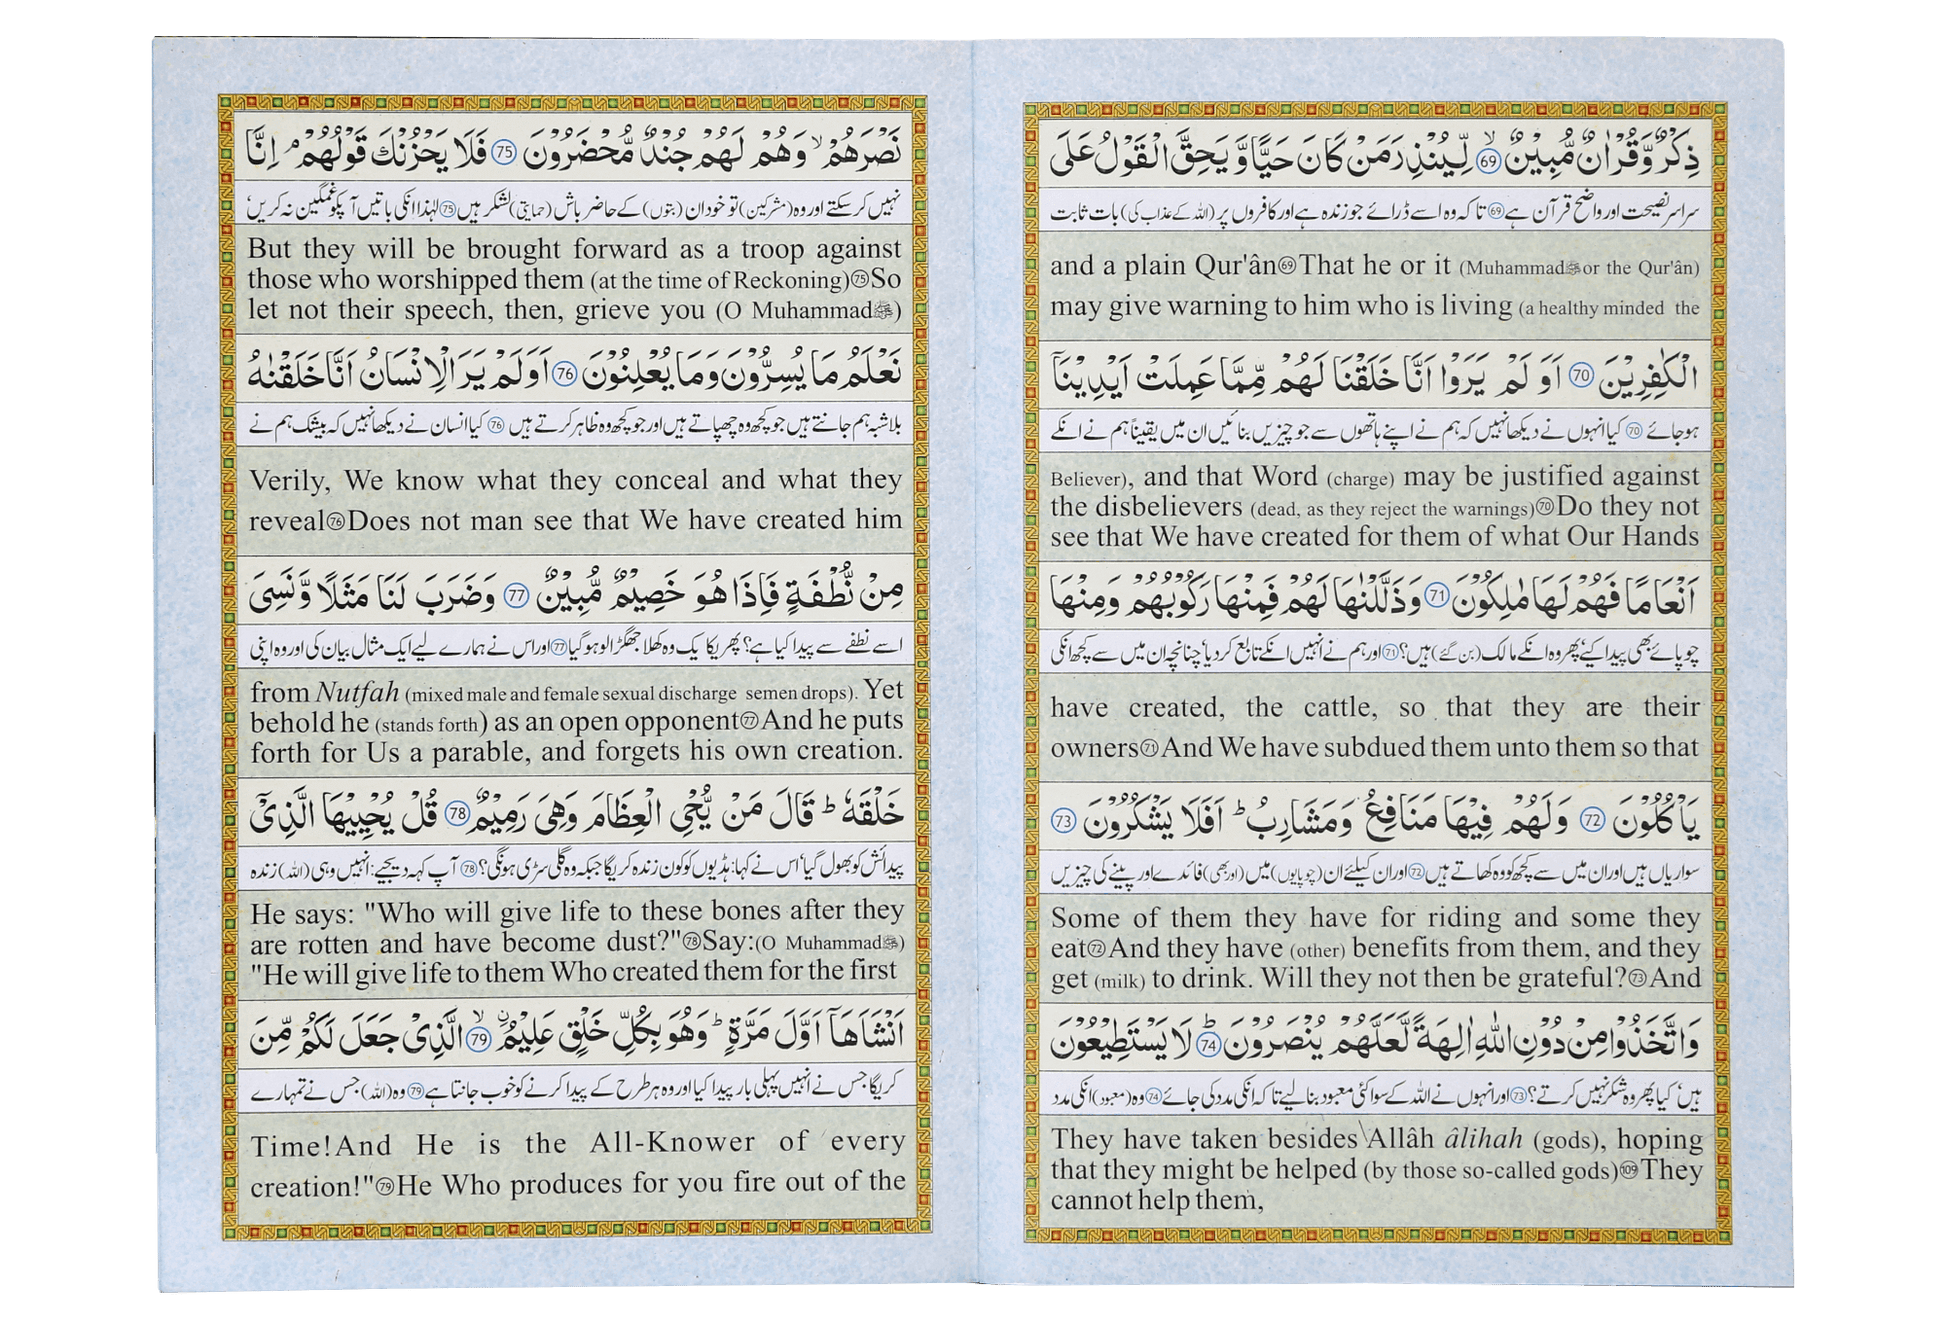 ذِكْرٌ وَّقُرْاٰنٌ مُّبِيْنٌ ۙ 69 لِّيُنْذِرَ مَنْ كَانَ حَيًّا وَّيَحِقَّ الْقَوْلُ عَلَى
سراسر نصیحت اور واضح قرآن ہے 69 تاکہ وہ اسے ڈرائے جو زندہ ہے اور کافروں پر (اللہ کے عذاب کی) بات ثابت
and a plain Qur'ân 69 That he or it (Muhammad ﷺ or the Qur'ân)
may give warning to him who is living (a healthy minded the
الْكٰفِرِيْنَ 70 اَوَ لَمْ يَرَوْا اَنَّا خَلَقْنَا لَهُمْ مِّمَّا عَمِلَتْ اَيْدِيْنَآ
ہو جائے 70 کیا انہوں نے دیکھا نہیں کہ ہم نے اپنے ہاتھوں سے جو چیزیں بنائیں ان میں یقیناً ہم نے انکے
Believer), and that Word (charge) may be justified against
the disbelievers (dead, as they reject the warnings) 70 Do they not
see that We have created for them of what Our Hands
اَنْعَامًا فَهُمْ لَهَا مٰلِكُوْنَ 71 وَذَلَّلْنٰهَا لَهُمْ فَمِنْهَا رَكُوْبُهُمْ وَمِنْهَا
چوپائے بھی پیدا کیے' پھر وہ انکے مالک (بن گئے) ہیں؟ 71 اور ہم نے انہیں انکے تابع کر دیا' چنانچہ ان میں سے کچھ انکی
have created, the cattle, so that they are their
owners 71 And We have subdued them unto them so that
يَاْكُلُوْنَ 72 وَلَهُمْ فِيْهَا مَنَافِعُ وَمَشَارِبُ ؕ اَفَلَا يَشْكُرُوْنَ 73
سواریاں ہیں اور ان میں سے کچھ کو وہ کھاتے ہیں 72 اور ان کیلئے ان (چوپایوں) میں (اور بھی) فائدے اور پینے کی چیزیں
Some of them they have for riding and some they
eat 72 And they have (other) benefits from them, and they
get (milk) to drink. Will they not then be grateful? 73 And
وَاتَّخَذُوْا مِنْ دُوْنِ اللّٰهِ اٰلِهَةً لَّعَلَّهُمْ يُنْصَرُوْنَ ؕ 74 لَا يَسْتَطِيْعُوْنَ
ہیں' کیا پھر وہ شکر نہیں کرتے؟ 73 اور انہوں نے اللہ کے سوا کئی معبود بنا لیے تاکہ انکی مدد کی جائے 74 وہ (معبود) انکی مدد
They have taken besides Allâh âlihah (gods), hoping
that they might be helped (by those so-called gods) 109 They
cannot help them,
نَصْرَهُمْ ۙ وَهُمْ لَهُمْ جُنْدٌ مُّحْضَرُوْنَ 75 فَلَا يَحْزُنْكَ قَوْلُهُمْ ۘ اِنَّا
نہیں کر سکتے اور وہ (مشرکین) تو خود ان (بتوں) کے حاضر باش (حمایتی) لشکر ہیں 75 لہٰذا انکی باتیں آپکو غمگین نہ کریں'
But they will be brought forward as a troop against
those who worshipped them (at the time of Reckoning) 75 So
let not their speech, then, grieve you (O Muhammad ﷺ)
نَعْلَمُ مَا يُسِرُّوْنَ وَمَا يُعْلِنُوْنَ 76 اَوَلَمْ يَرَ الْاِنْسَانُ اَنَّا خَلَقْنٰهُ
بلاشبہ ہم جانتے ہیں جو کچھ وہ چھپاتے ہیں اور جو کچھ وہ ظاہر کرتے ہیں 76 کیا انسان نے دیکھا نہیں کہ بیشک ہم نے
Verily, We know what they conceal and what they
reveal 76 Does not man see that We have created him
مِنْ نُّطْفَةٍ فَاِذَا هُوَ خَصِيْمٌ مُّبِيْنٌ 77 وَضَرَبَ لَنَا مَثَلًا وَّنَسِىَ
اسے نطفے سے پیدا کیا ہے؟ پھر یکایک وہ کھلا جھگڑالو ہو گیا 77 اور اس نے ہمارے لیے ایک مثال بیان کی اور وہ اپنی
from Nutfah (mixed male and female sexual discharge semen drops). Yet
behold he (stands forth) as an open opponent 77 And he puts
forth for Us a parable, and forgets his own creation.
خَلْقَهٗ ؕ قَالَ مَنْ يُّحْىِ الْعِظَامَ وَهِىَ رَمِيْمٌ 78 قُلْ يُحْيِيْهَا الَّذِىْٓ
پیدائش کو بھول گیا' اس نے کہا: ہڈیوں کو کون زندہ کریگا جبکہ وہ گلی سڑی ہونگی؟ 78 آپ کہہ دیجیے: انہیں وہی (اللہ) زندہ
He says: "Who will give life to these bones after they
are rotten and have become dust?" 78 Say:(O Muhammad ﷺ)
"He will give life to them Who created them for the first
اَنْشَاَهَآ اَوَّلَ مَرَّةٍ ؕ وَهُوَ بِكُلِّ خَلْقٍ عَلِيْمُ ۙ 79 الَّذِىْ جَعَلَ لَكُمْ مِّنَ
کریگا جس نے انہیں پہلی بار پیدا کیا اور وہ ہر طرح کے پیدا کرنے کو خوب جانتا ہے 79 وہ (اللہ) جس نے تمہارے
Time! And He is the All-Knower of every
creation!" 79 He Who produces for you fire out of the